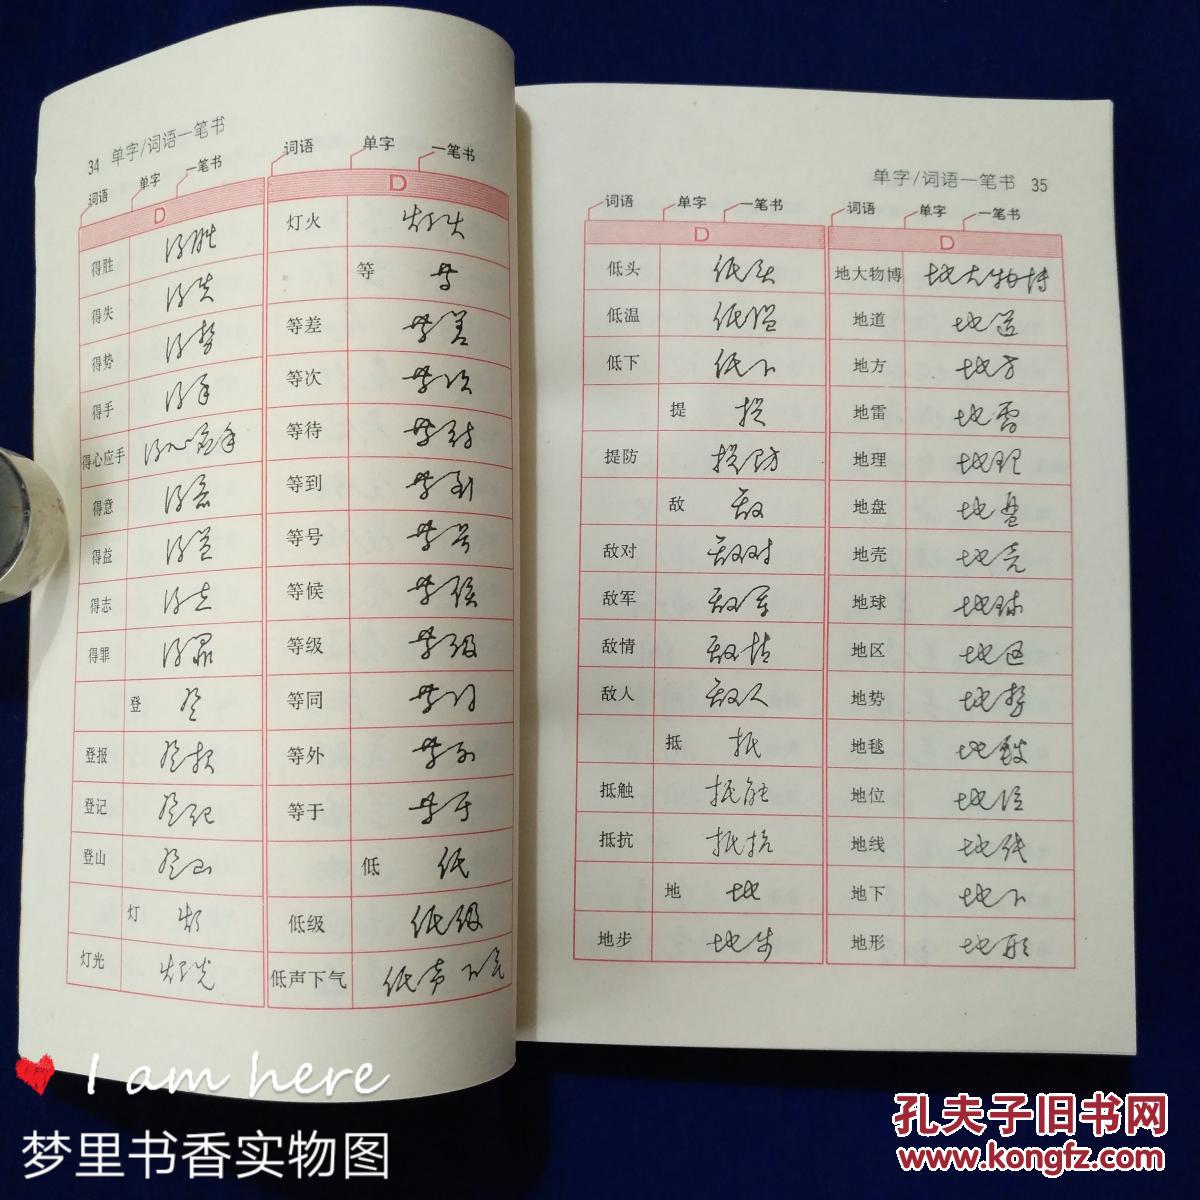 34 单字/词语一笔书
词语 单字 一笔书
D
得胜 得胜
得失 得失
得势 得势
得手 得手
得心应手 得心应手
得意 得意
得益 得益
得志 得志
得罪 得罪
登 登
登报 登报
登记 登记
登山 登山
灯 灯
灯光 灯光
词语 单字 一笔书
D
灯火 灯火
等 等
等差 等差
等次 等次
等待 等待
等到 等到
等号 等号
等候 等候
等级 等级
等同 等同
等外 等外
等于 等于
低 低
低级 低级
低声下气 低声下气
单字/词语一笔书 35
词语 单字 一笔书
D
低头 低头
低温 低温
低下 低下
提 提
提防 提防
敌 敌
敌对 敌对
敌军 敌军
敌情 敌情
敌人 敌人
抵 抵
抵触 抵触
抵抗 抵抗
地 地
地步 地步
词语 单字 一笔书
D
地大物博 地大物博
地道 地道
地方 地方
地雷 地雷
地理 地理
地盘 地盘
地壳 地壳
地球 地球
地区 地区
地势 地势
地毯 地毯
地位 地位
地线 地线
地下 地下
地形 地形
I am here
梦里书香实物图
孔夫子旧书网
www.kongfz.com